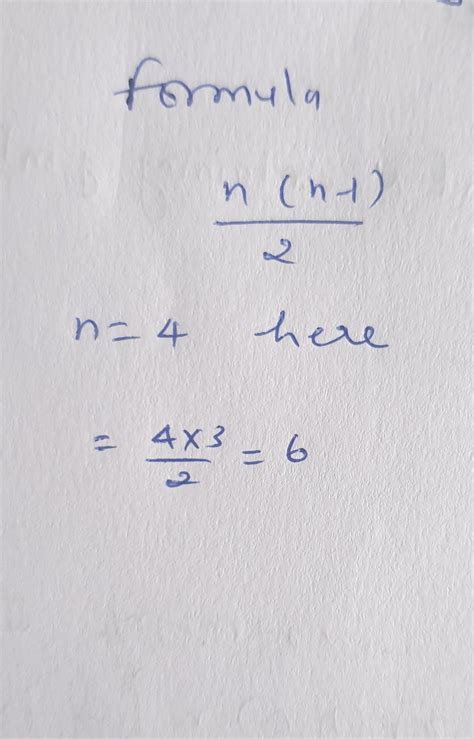 formula
n (n-1)
2
n = 4 here
= 4x3 = 6
2